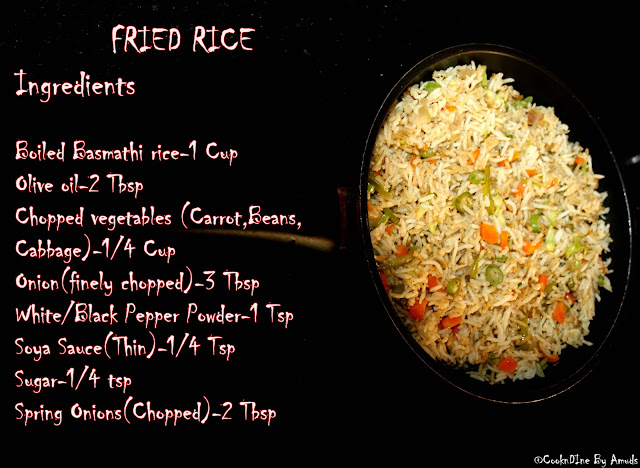 FRIED RICE
Ingredients
Boiled Basmathi rice-1 Cup
Olive oil-2 Tbsp
Chopped vegetables (Carrot,Beans,
Cabbage)-1/4 Cup
Onion(finely chopped)-3 Tbsp
White/Black Pepper Powder-1 Tsp
Soya Sauce(Thin)-1/4 Tsp
Sugar-1/4 tsp
Spring Onions(Chopped)-2 Tbsp
©CooknDIne By Amuds